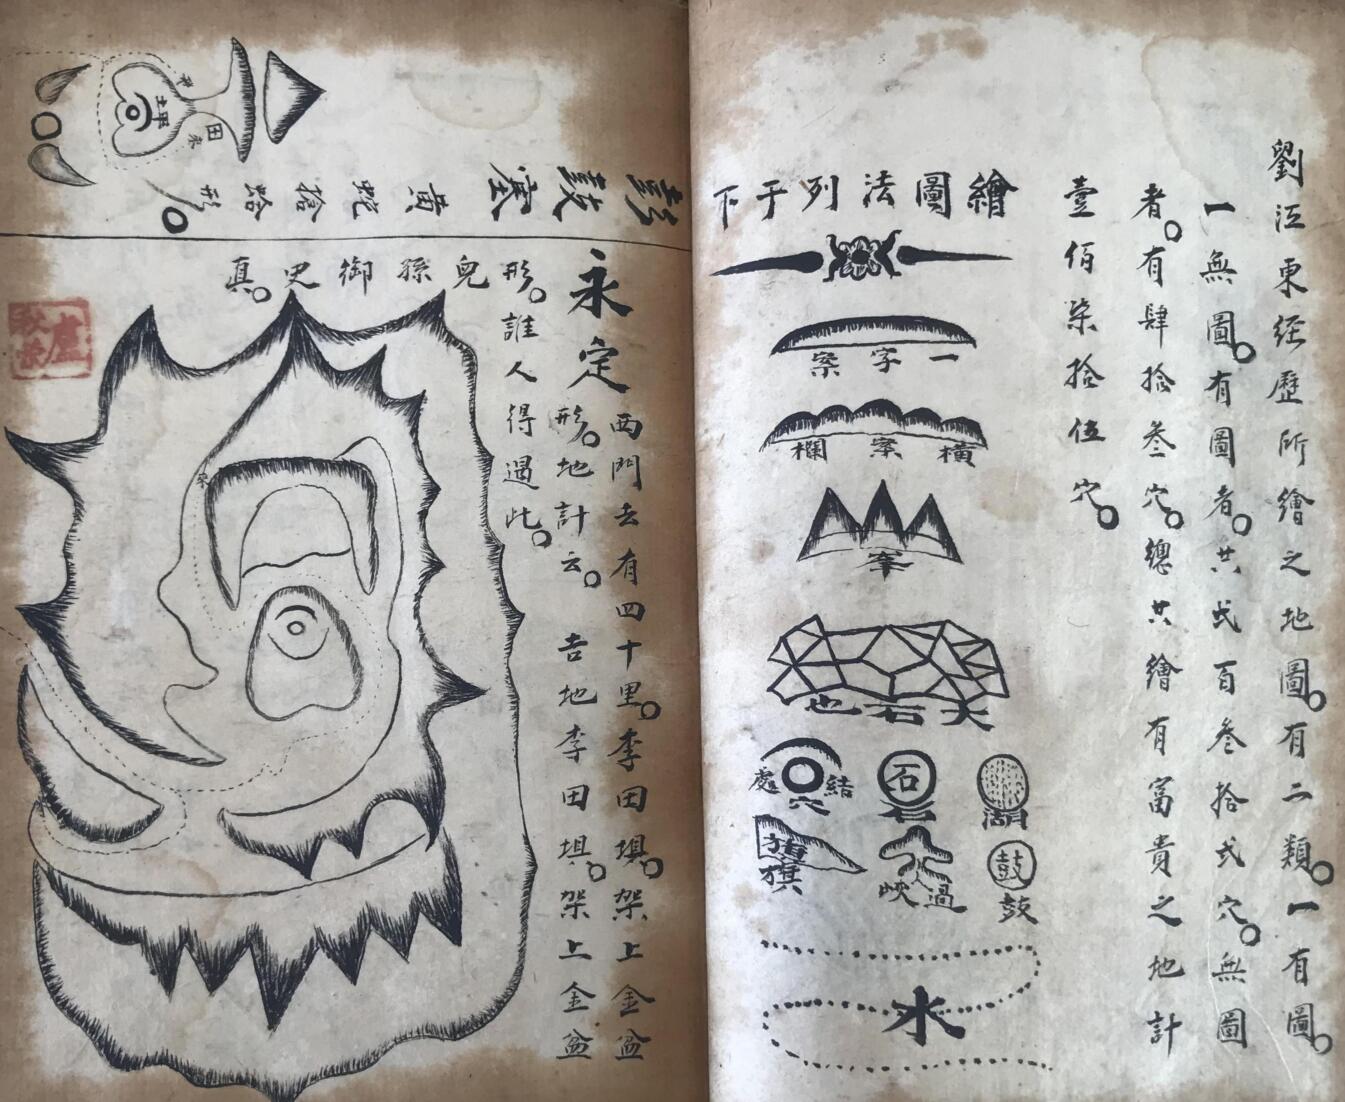 劉江東經歷所繪之地圖。有二類。一有圖。
一無圖。有圖者。共弍百叄拾弍穴。無圖
者。有肆拾叄穴。總共繪有富貴之地計
壹佰柒拾伍穴。
繪圖法列于下
一字案
橫案欄
峯
大石也
結穴處
石
岩
湖
旗
過峽
鼓
鼓
水
永定
西門去有四十里。李田垻。架上金盆
形。地計云。吉地李田垻。架上金盆
形。誰人得遇此。
兒孫御史真。
彭
鼓
寨
黃
蛇
搶
蛤
形。
田